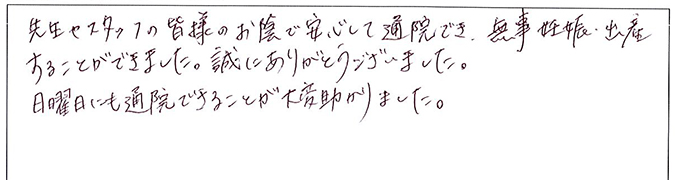 先生やスタッフの皆様のお陰で安心して通院でき、無事妊娠・出産
することができました。誠にありがとうございました。
日曜日にも通院できることが大変助かりました。